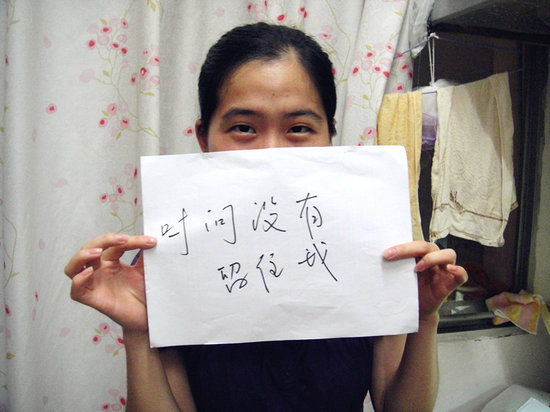 时间没有
留住我